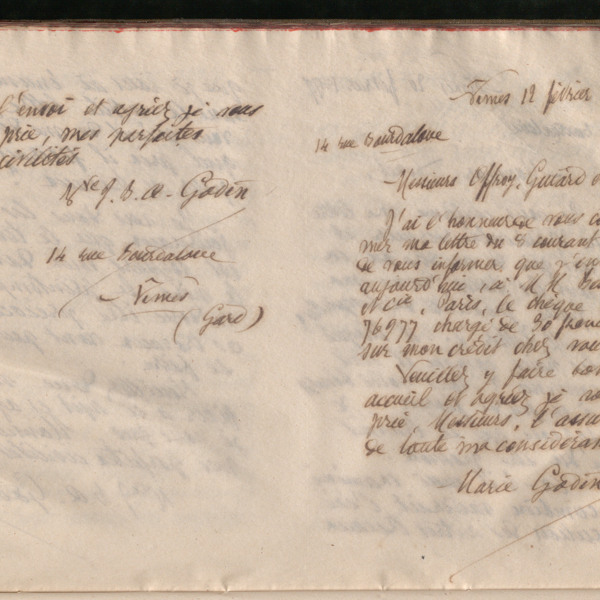 l'envoi et agréez je vous
prie, mes parfaites
civilités
Vve J. B. A. Godin
14 rue Bourdaloue
Nîmes
(Gard)
Nîmes 12 février
14 rue Bourdaloue
Messieurs Offroy, Guiard
J'ai l'honneur de vous co
mer ma lettre du 8 courant
de vous informer, que j'en
aujourd'hui, à M M
et Cie, Paris, le chèque
76977 chargé de 30 franc
sur mon crédit chez vou
Veuillez y faire bon
accueil et agréez je vo
prie, Messieurs, l'assu
de toute ma considérat
Marie Godin